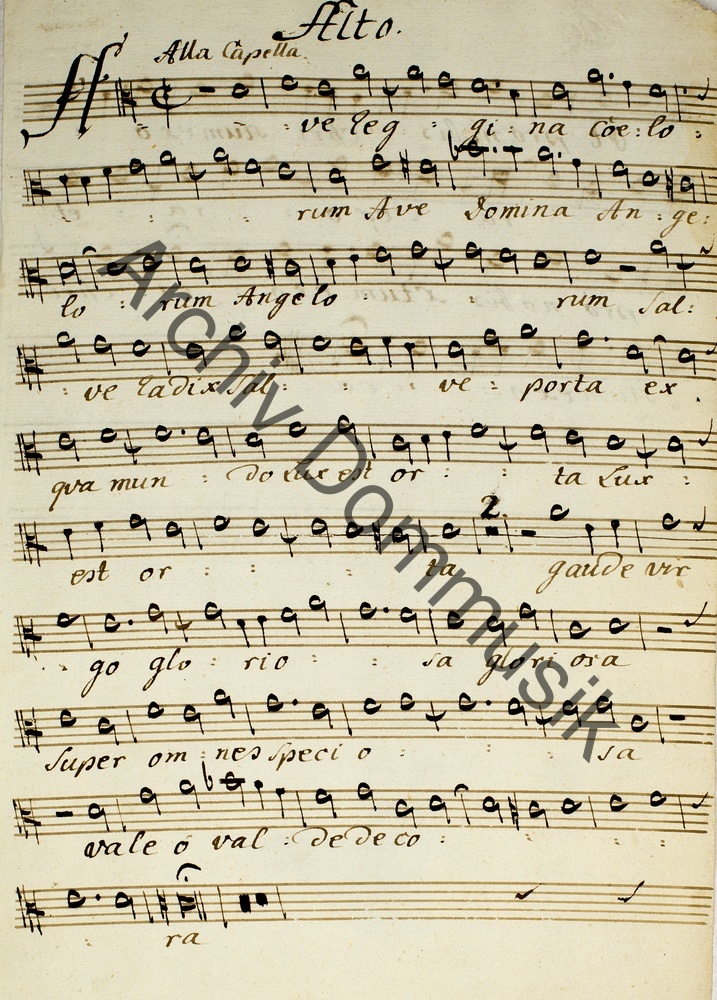 Alto.
Alla Capella
A : ve Reg : gi na coe : lo :
: : : rum Ave Domina An : ge :
lo : rum Angelo : : : rum Sal :
: ve Radix Sal : : : ve : porta ex .
qva mun : do Lux est or : : ta Lux :
2.
est or : : : : ta gaude vir
: . go glo : rio : : sa glori osa
Super om : nes speci o : : : sa
vale o val : de de co : : : :
: ra
Archiv Dommusik